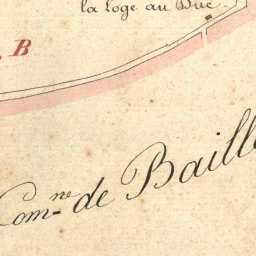 la Loge au Duc
B
Com.ne de Baill